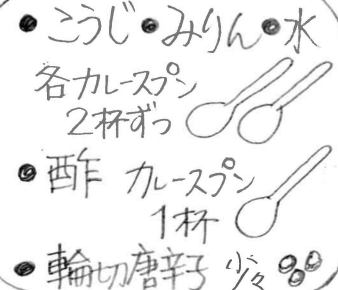 ●こうじ●みりん●水
各カレースプン
2杯ずつ
●酢 カレースプン
1杯
●輪切唐辛子 少々